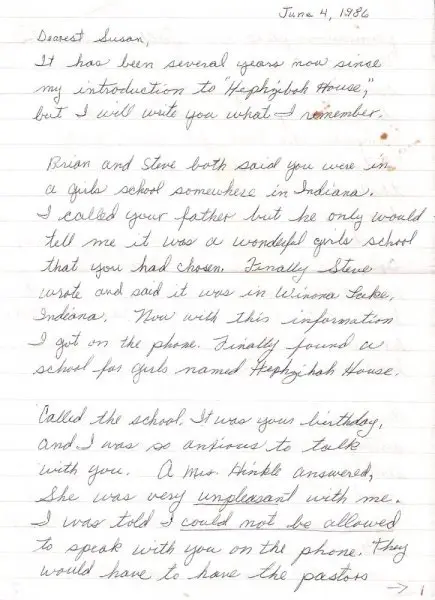 June 4, 1986
Dearest Susan,
It has been several years now since
my introduction to "Hephzibah House,"
but I will write you what I remember.
Brian and Steve both said you were in
a girls school somewhere in Indiana.
I called your father but he only would
tell me it was a wonderful girls school
that you had chosen. Finally Steve
wrote and said it was in Winona Lake,
Indiana. Now with this information
I got on the phone. Finally found a
school for girls named Hephzibah House.
Called the school. It was your birthday,
and I was so anxious to talk
with you. A Mrs. Hinkle answered,
She was very unpleasant with me.
I was told I could not be allowed
to speak with you on the phone. They
would have to have the pastors
→ 1